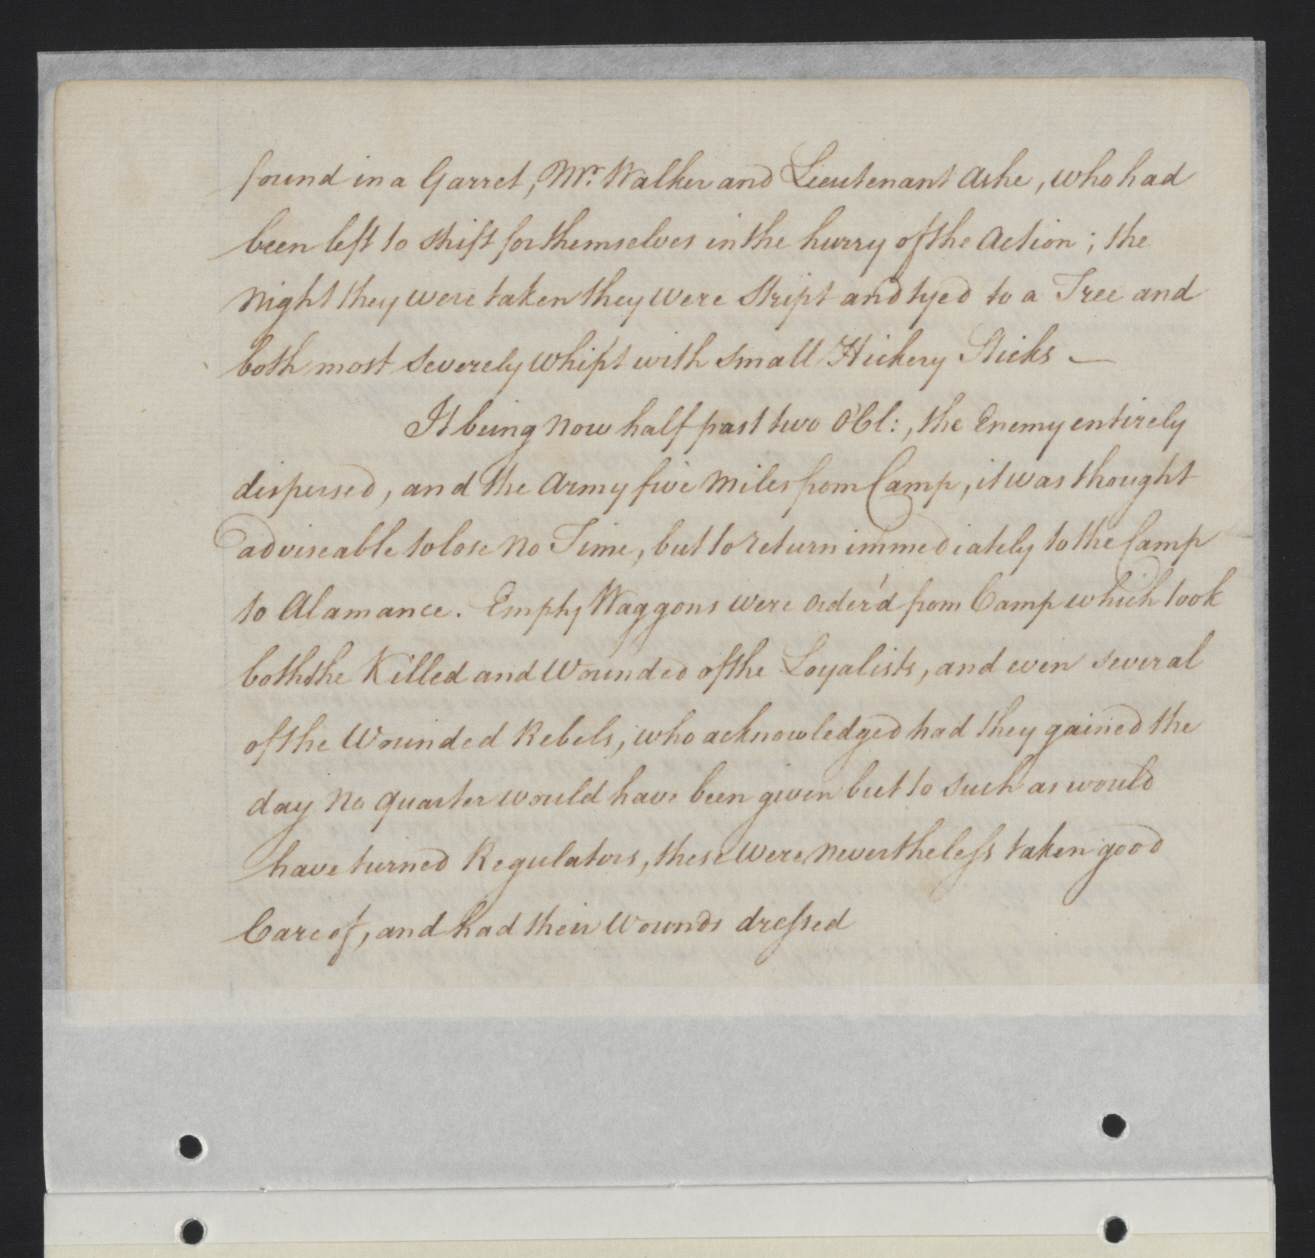 found in a Garret, Mr. Walker and Lieutenant Ashe, who had
been left to shift for themselves in the hurry of the Action; the
Night they were taken they were Stript and tyed to a Tree and
both most severely whipt with small Hickery Sticks —
It being now half past two O'Cl:, the Enemy entirely
dispersed, and the Army five Miles from Camp, it was thought
adviseable to lose no Time, but to return immediately to the Camp
to Alamance. Empty Waggons were order'd from Camp which took
both the Killed and Wounded of the Loyalists, and even several
of the Wounded Rebels, who acknowledged had they gained the
day no quarter would have been given but to such as would
have turned Regulators, these were nevertheless taken good
Care of, and had their Wounds dressed